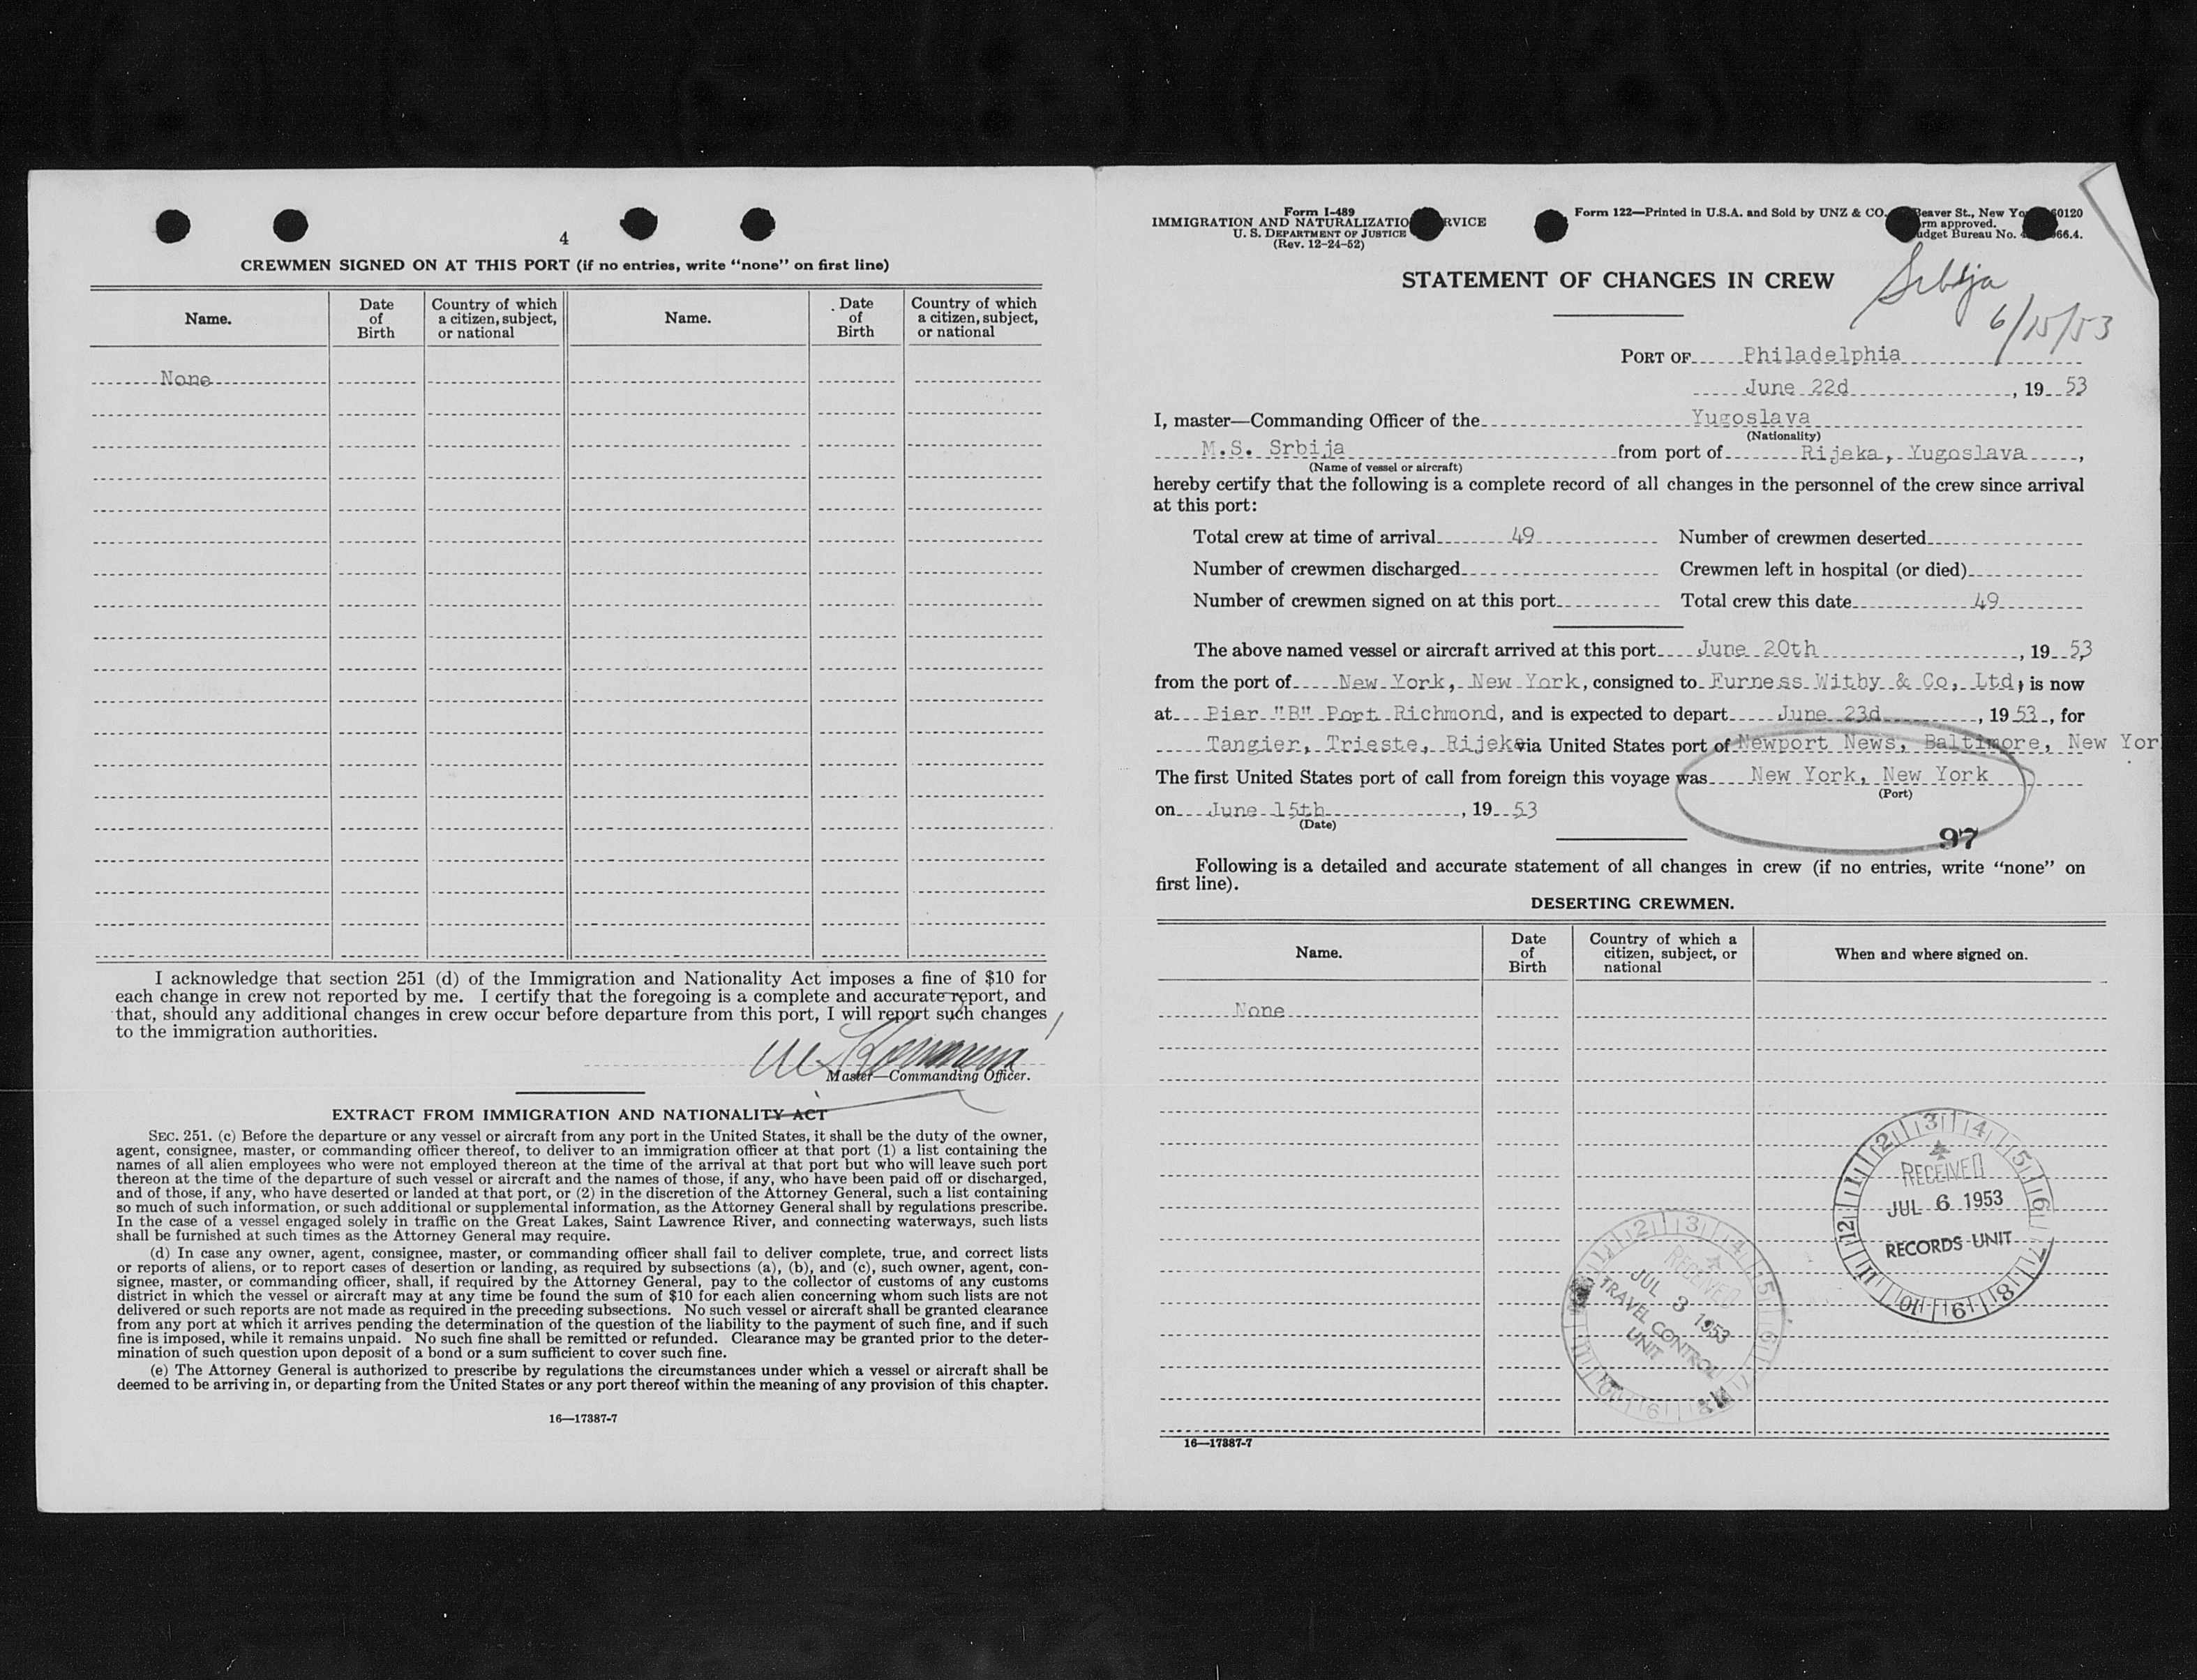 4
CREWMEN SIGNED ON AT THIS PORT (if no entries, write “none” on first line)
Name. Date of Birth Country of which a citizen, subject, or national Name. Date of Birth Country of which a citizen, subject, or national
None
I acknowledge that section 251 (d) of the Immigration and Nationality Act imposes a fine of $10 for
each change in crew not reported by me. I certify that the foregoing is a complete and accurate report, and
that, should any additional changes in crew occur before departure from this port, I will report such changes
to the immigration authorities.
Master—Commanding Officer.
EXTRACT FROM IMMIGRATION AND NATIONALITY ACT
SEC. 251. (c) Before the departure or any vessel or aircraft from any port in the United States, it shall be the duty of the owner,
agent, consignee, master, or commanding officer thereof, to deliver to an immigration officer at that port (1) a list containing the
names of all alien employees who were not employed thereon at the time of the arrival at that port but who will leave such port
thereon at the time of the departure of such vessel or aircraft and the names of those, if any, who have been paid off or discharged,
and of those, if any, who have deserted or landed at that port, or (2) in the discretion of the Attorney General, such a list containing
so much of such information, or such additional or supplemental information, as the Attorney General shall by regulations prescribe.
In the case of a vessel engaged solely in traffic on the Great Lakes, Saint Lawrence River, and connecting waterways, such lists
shall be furnished at such times as the Attorney General may require.
(d) In case any owner, agent, consignee, master, or commanding officer shall fail to deliver complete, true, and correct lists
or reports of aliens, or to report cases of desertion or landing, as required by subsections (a), (b), and (c), such owner, agent, con-
signee, master, or commanding officer, shall, if required by the Attorney General, pay to the collector of customs of any customs
district in which the vessel or aircraft may at any time be found the sum of $10 for each alien concerning whom such lists are not
delivered or such reports are not made as required in the preceding subsections. No such vessel or aircraft shall be granted clearance
from any port at which it arrives pending the determination of the question of the liability to the payment of such fine, and if such
fine is imposed, while it remains unpaid. No such fine shall be remitted or refunded. Clearance may be granted prior to the deter-
mination of such question upon deposit of a bond or a sum sufficient to cover such fine.
(e) The Attorney General is authorized to prescribe by regulations the circumstances under which a vessel or aircraft shall be
deemed to be arriving in, or departing from the United States or any port thereof within the meaning of any provision of this chapter.
16—17387-7
Form I-489
IMMIGRATION AND NATURALIZATIO RVICE
U. S. DEPARTMENT OF JUSTICE
(Rev. 12-24-52)
Form 122—Printed in U.S.A. and Sold by UNZ & CO. Beaver St., New Yo 60120
rm approved.
udget Bureau No. 66.4.
STATEMENT OF CHANGES IN CREW
Srbija
6/15/53
PORT OF Philadelphia
June 22d, 19 53
I, master—Commanding Officer of the Yugoslava
(Nationality)
M.S. Srbija from port of Rijeka, Yugoslava,
(Name of vessel or aircraft)
hereby certify that the following is a complete record of all changes in the personnel of the crew since arrival
at this port:
Total crew at time of arrival 49 Number of crewmen deserted
Number of crewmen discharged Crewmen left in hospital (or died)
Number of crewmen signed on at this port Total crew this date 49
The above named vessel or aircraft arrived at this port June 20th, 19 53,
from the port of New York, New York, consigned to Furness Witby & Co, Ltd, is now
at Pier "B" Port Richmond, and is expected to depart June 23d, 19 53, for
Tangier, Trieste, Rijeka via United States port of Newport News, Baltimore, New Yor
The first United States port of call from foreign this voyage was New York, New York
(Port)
on June 15th, 19 53
(Date)
97
Following is a detailed and accurate statement of all changes in crew (if no entries, write “none” on
first line).
DESERTING CREWMEN.
Name. Date of Birth Country of which a citizen, subject, or national When and where signed on.
None
RECEIVED
JUL 6 1953
RECORDS UNIT
RECEIVED
JUL 3 1953
TRAVEL CONTROL
UNIT
16—17387-7